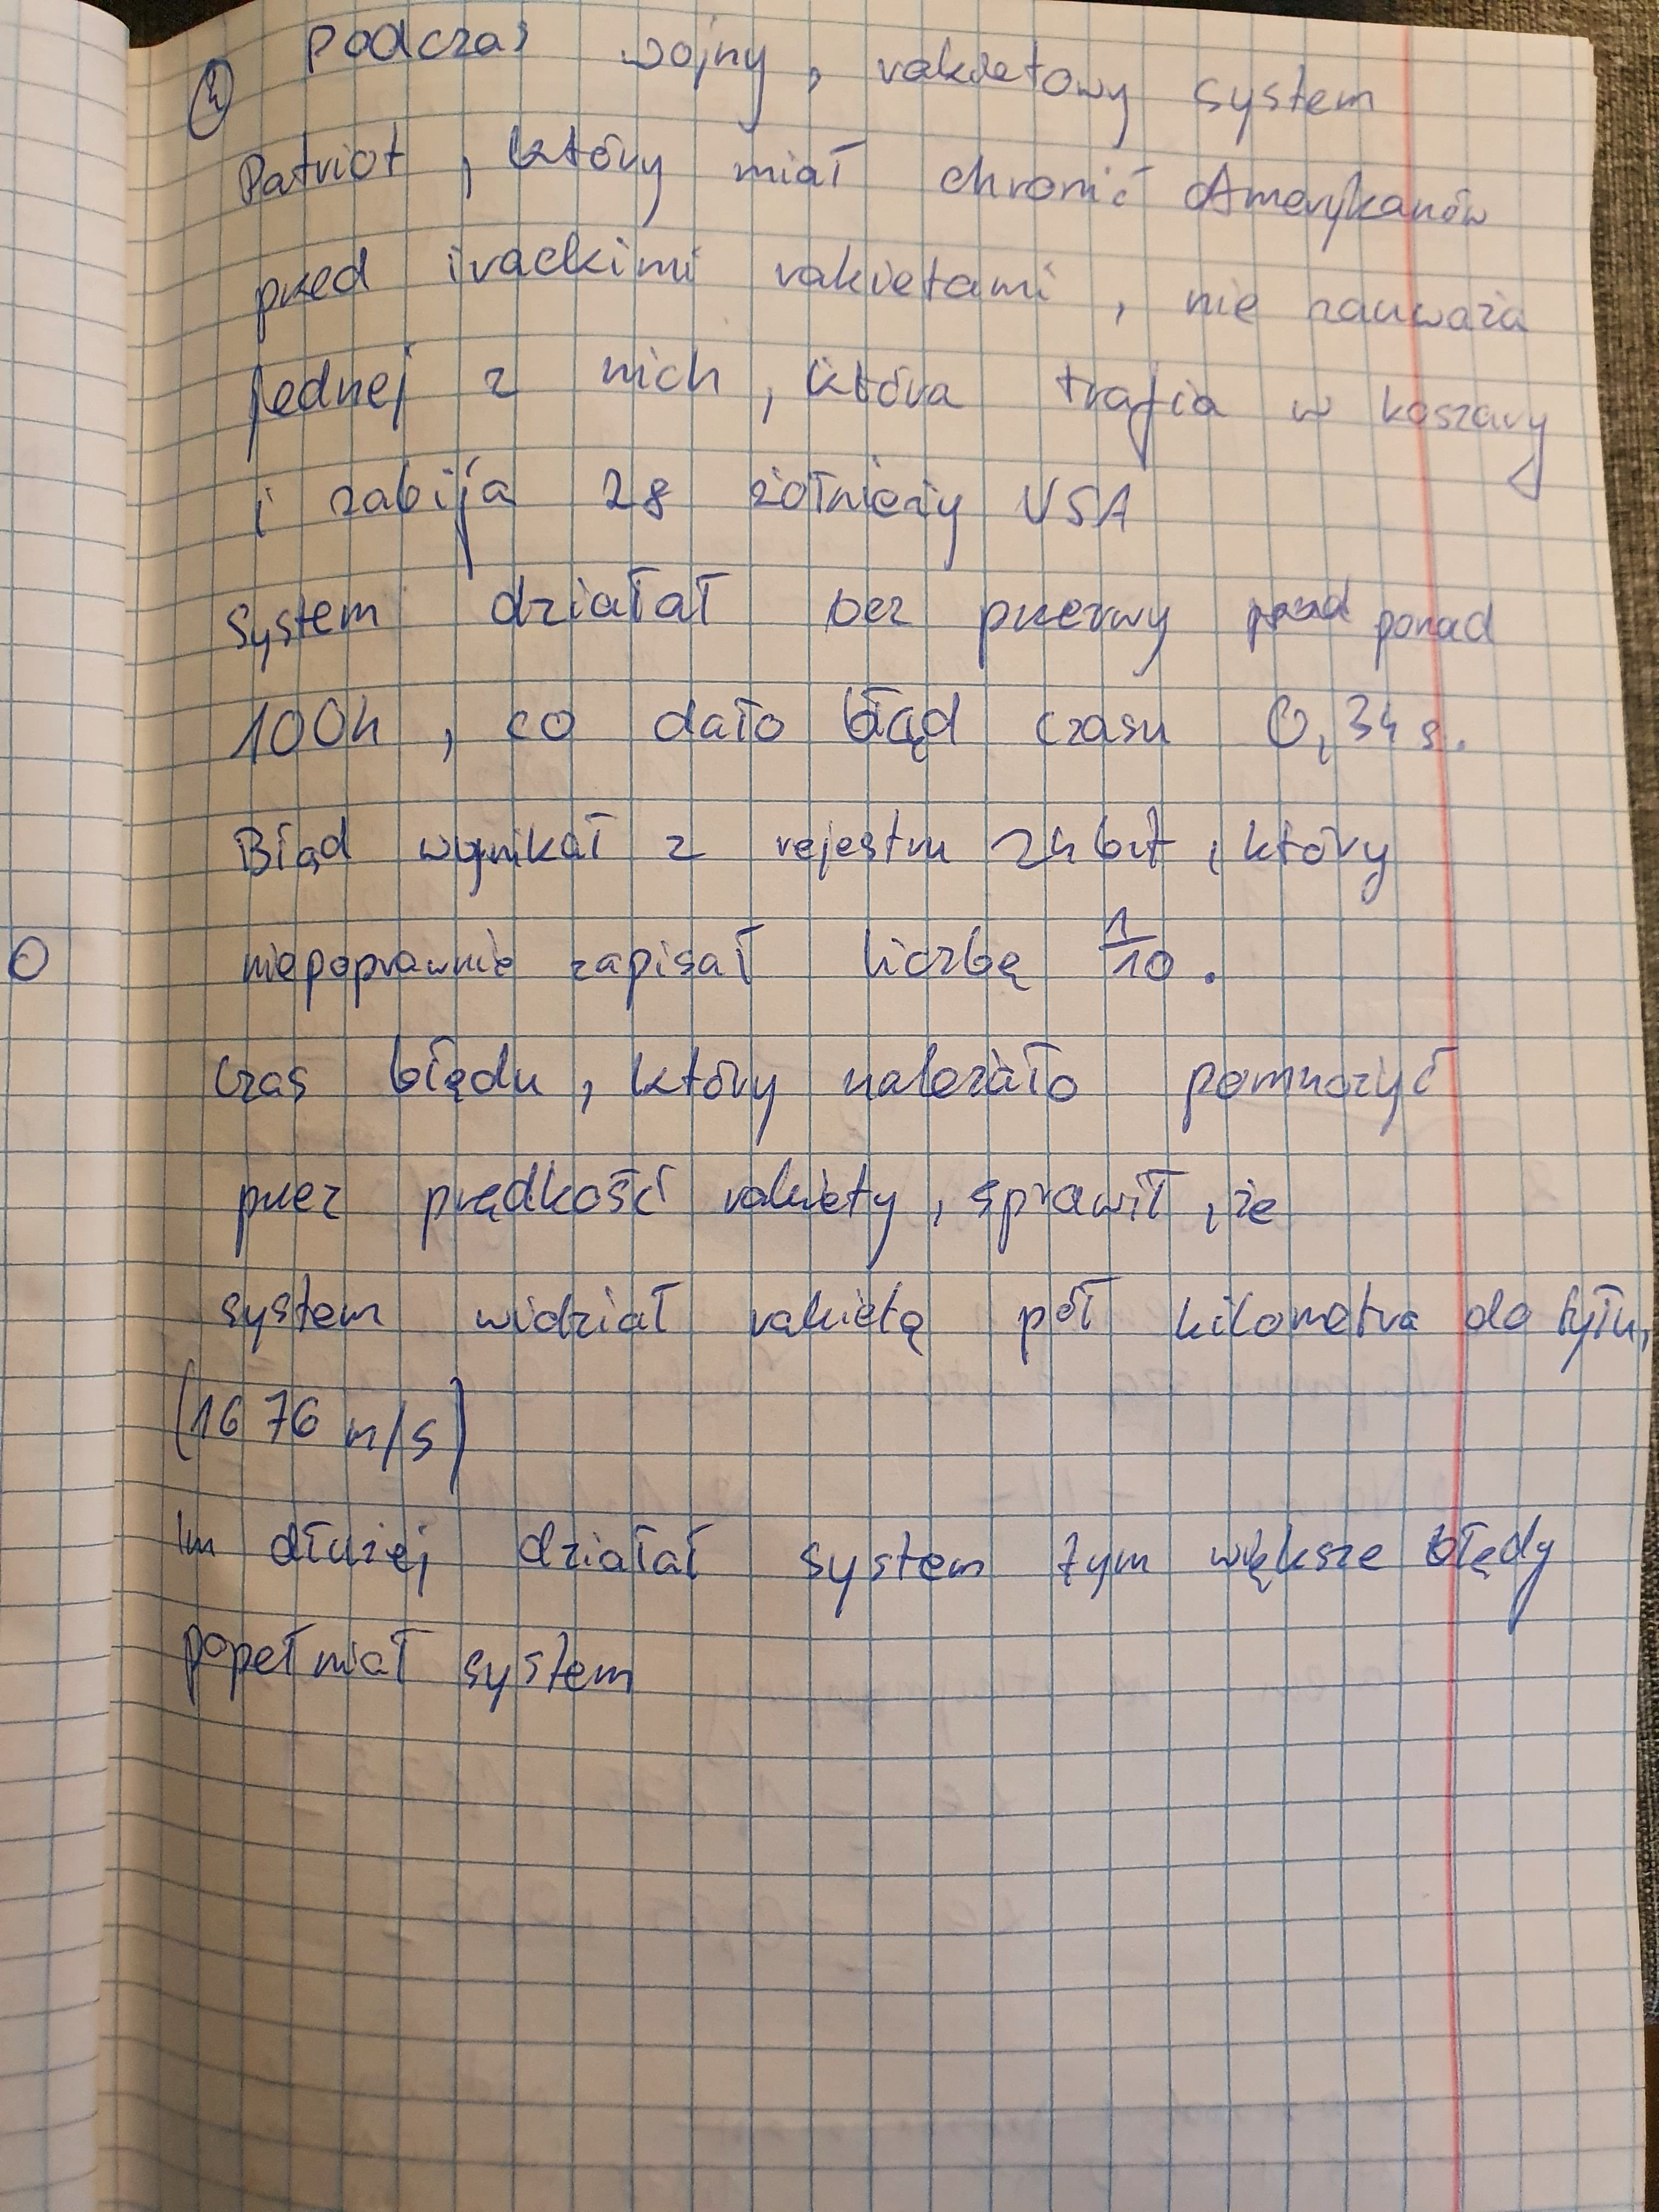 ④ Podczas wojny, rakietowy system
Patriot, który miał chronić Amerykanów
przed irackimi rakietami, nie zauważa
jednej z nich, która trafia w koszary
i zabija 28 żołnierzy USA
System działał bez przerwy ponad
100h, co dało błąd czasu 0,34 s.
Błąd wynikał z rejestru 24 bit, który
niepoprawnie zapisał liczbę 1/10.
Czas błędu, który należało pomnożyć
przez prędkość rakiety, sprawił, że
system widział rakietę pół kilometra do tyłu,
(1676 m/s)
Im dłużej działał system tym większe błędy
popełniał system